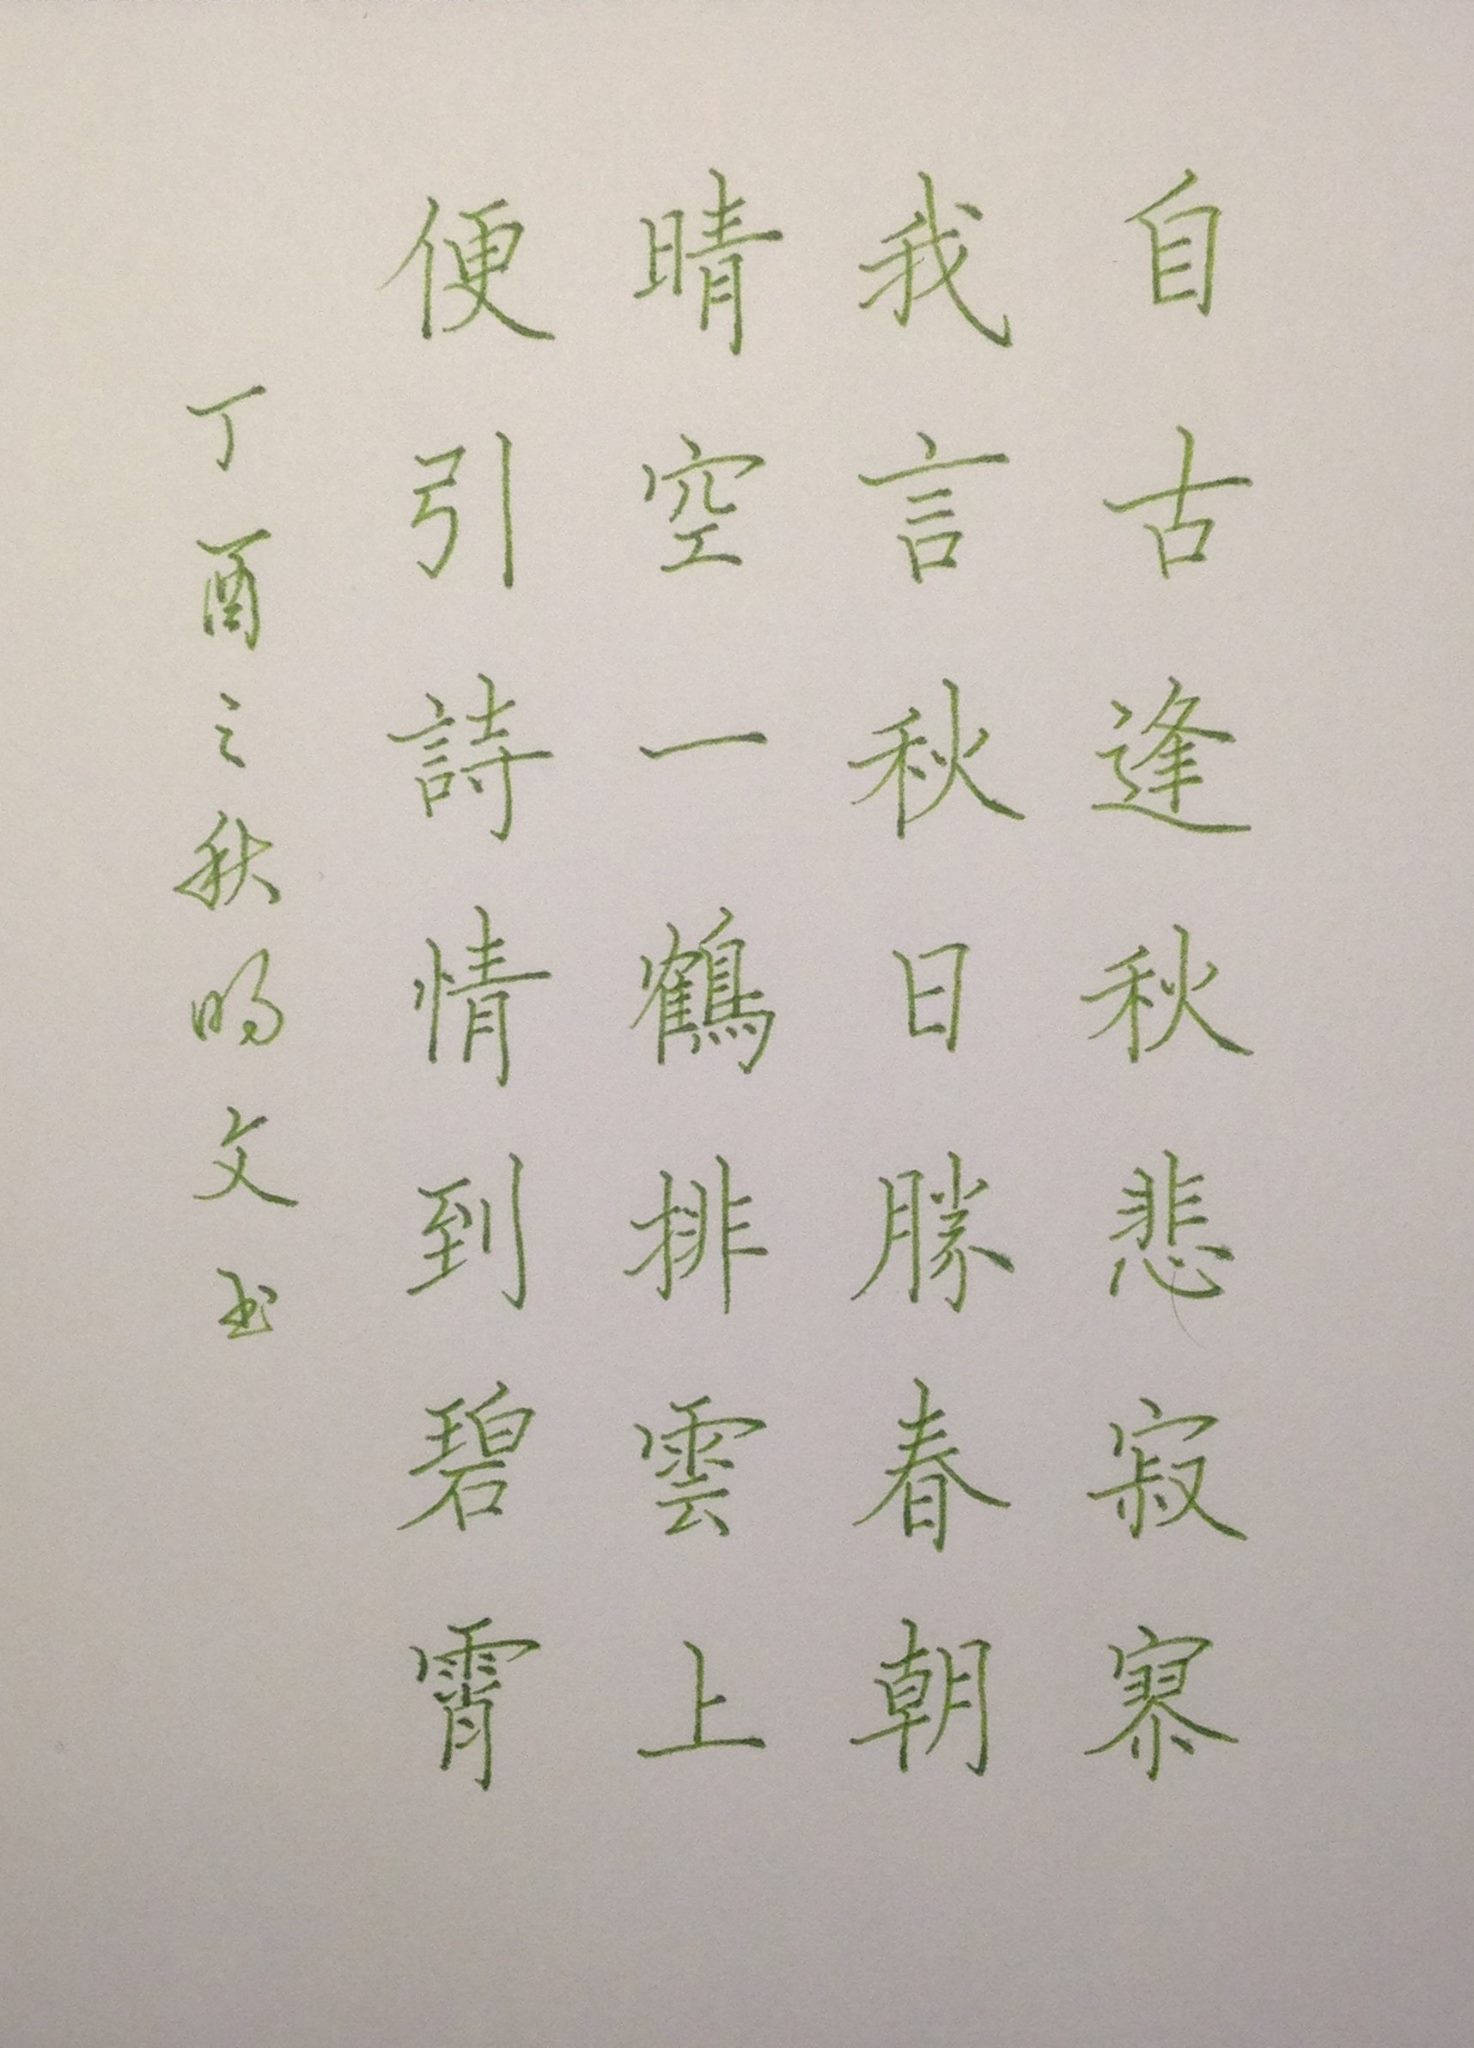 自古逢秋悲寂寥
我言秋日勝春朝
晴空一鶴排雲上
便引詩情到碧霄
丁酉之秋明文书